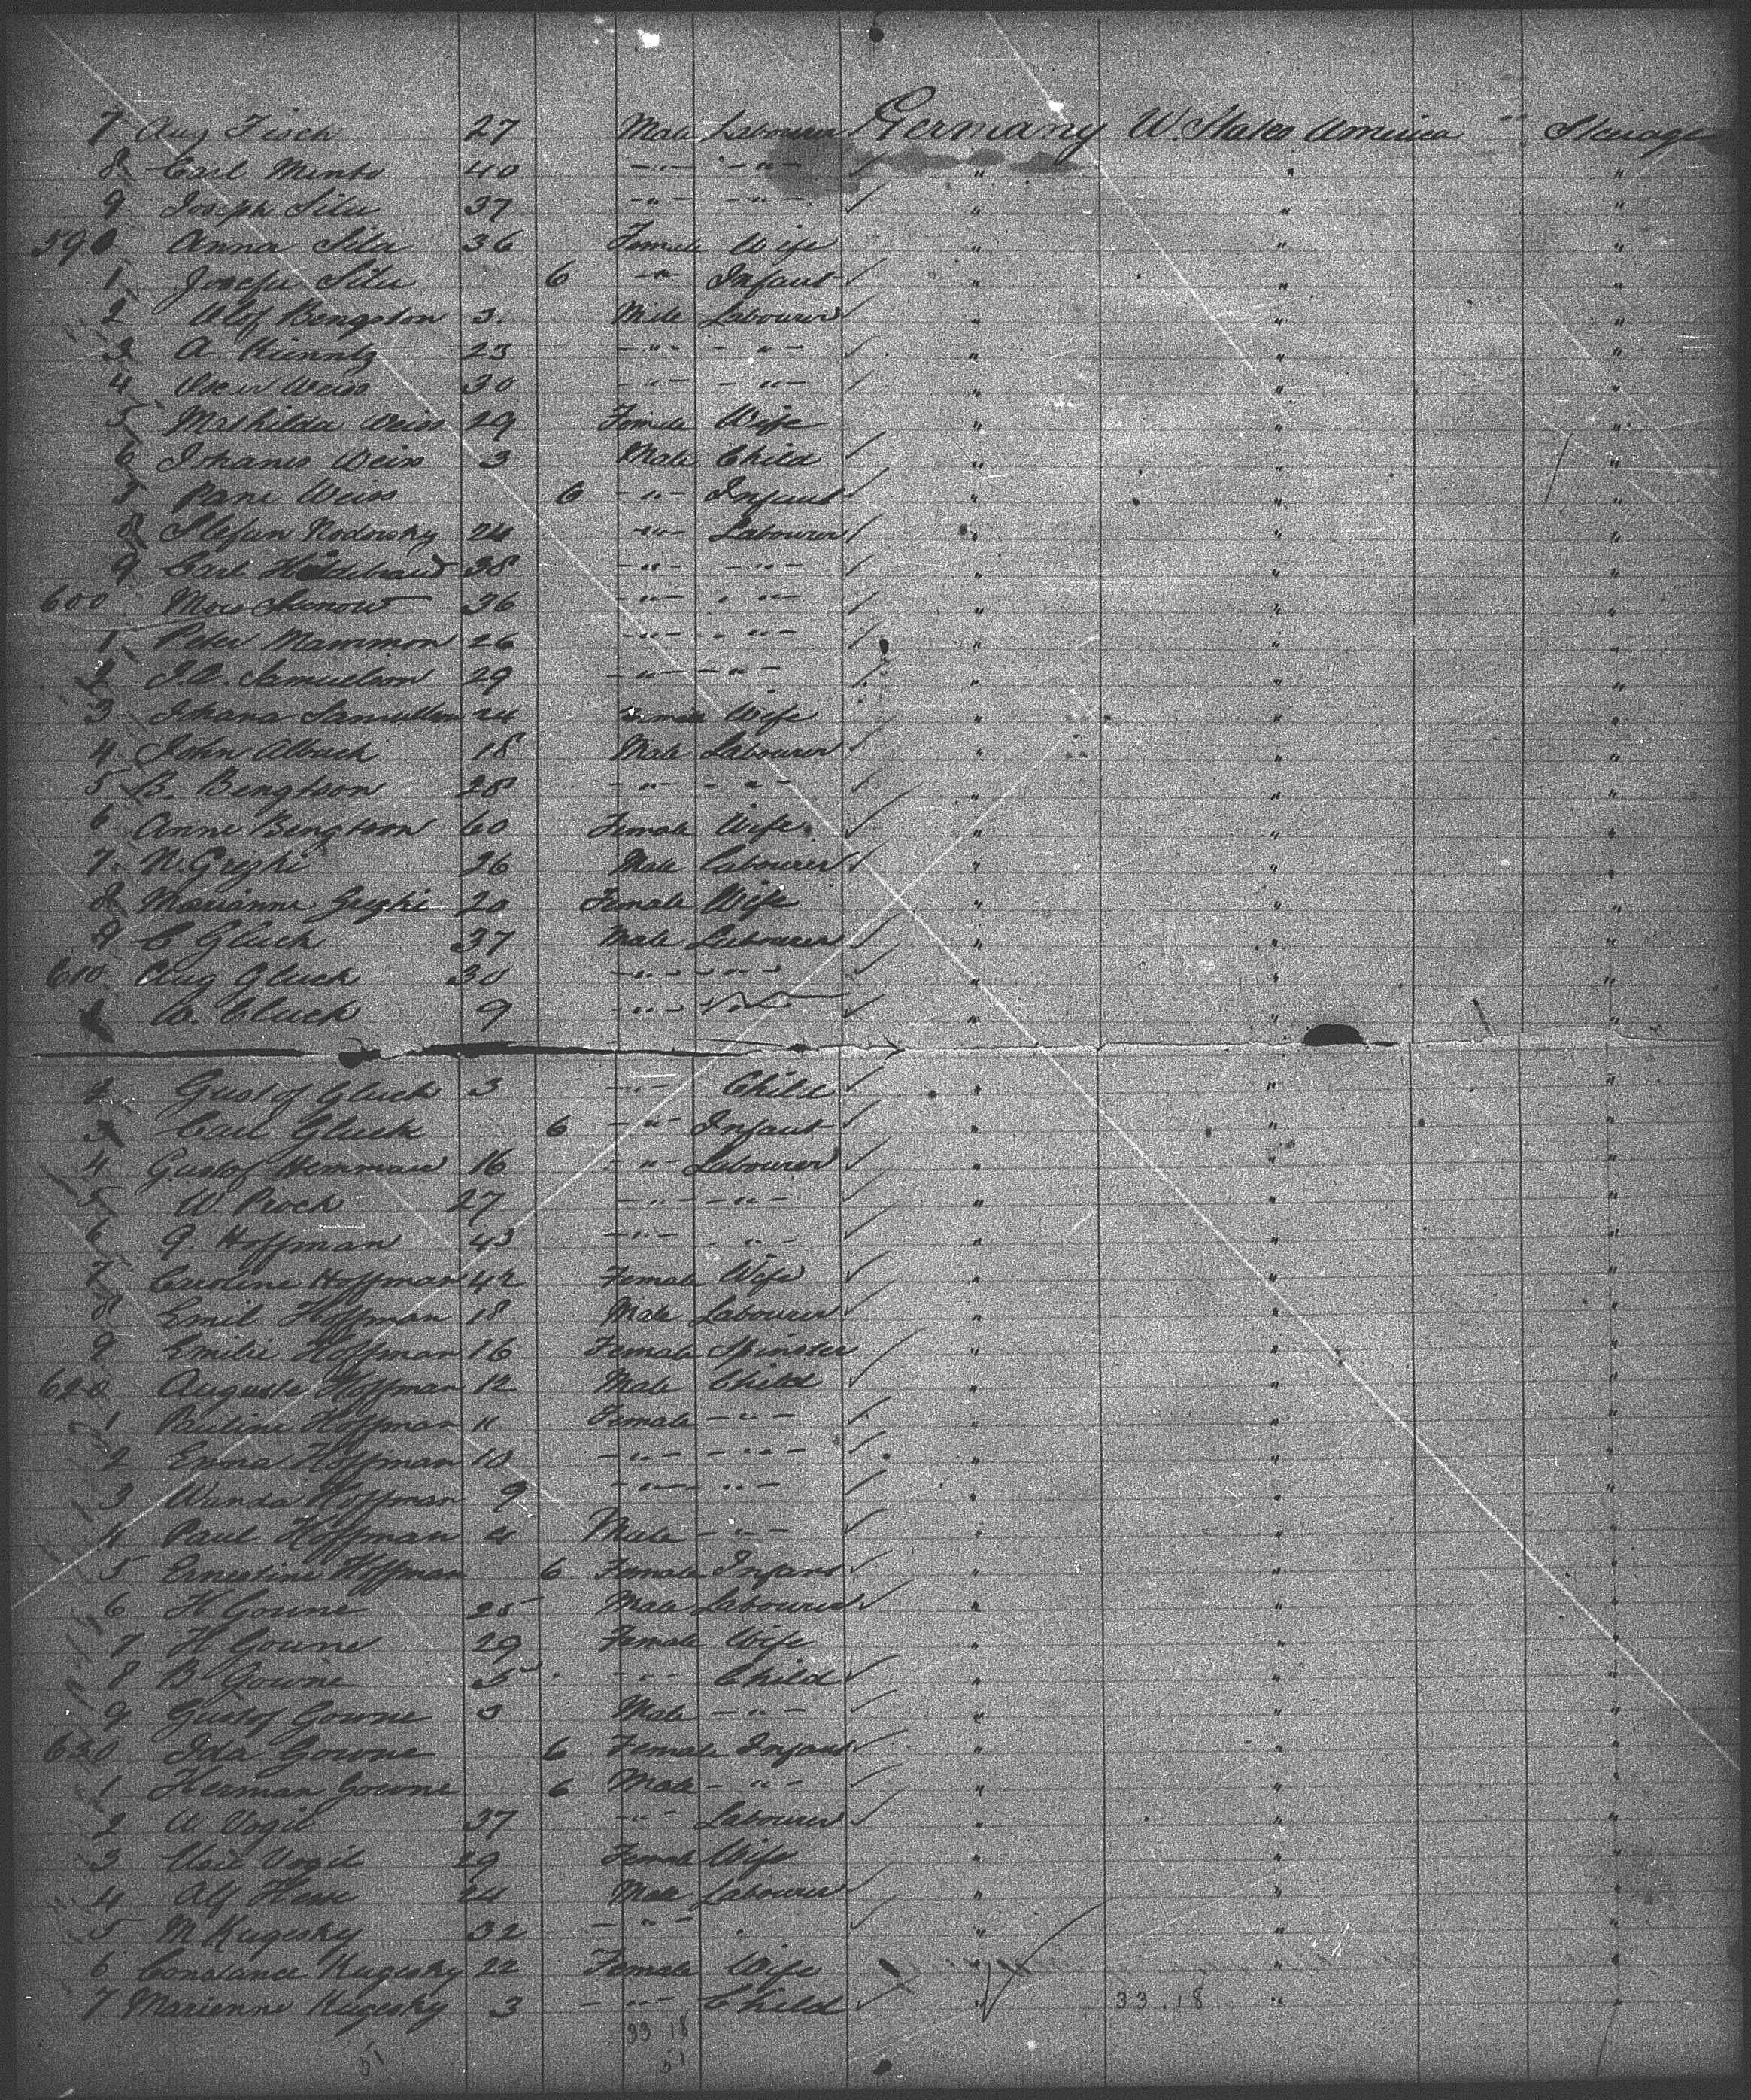 7 Aug Fisch 27 Male Labourer Germany U. States America " Steerage
8 Carl Mintz 40 -"- -"- " " "
9 Joseph Sila 37 -"- -"- " " "
590 Anna Sila 36 Female Wife " " "
1 Josefa Sila 6 -"- Infant " " "
2 Olof Bengston 3. Male Labourer " " "
3 A 23 -"- -"- " " "
4 Weiss 30 -"- -"- " " "
5 Mathilda Weiss 29 Female Wife " " "
6 Johanes Weiss 3 Male Child " " "
7 Weiss 6 -"- Infant " " "
8 Stefan Nodowsky 24 -"- Labourer " " "
9 Carl Hildebrand 38 -"- -"- " " "
600 36 -"- -"- " " "
1 Peter Mammon 26 -"- -"- " " "
2 J.A. Samuelson 29 -"- -"- " " "
3 Johana Samuelson 24 Female Wife " " "
4 John Albuch 18 Male Labourer " " "
5 B. Bengtson 28 -"- -"- " " "
6 Anne Bengtson 60 Female Wife " " "
7 N. Grighi 26 Male Labourer " " "
8 Marianne Grighi 20 Female Wife " " "
9 C Gluck 37 Male Labourer " " "
610 Aug Gluck 30 -"- -"- " " "
1 W. Gluck 9 -"- " " "
2 Gustof Gluck 3 -"- Child " " "
3 Carl Gluck 6 -"- Infant " " "
4 Gustof Hemman 16 -"- Labourer " " "
5 W. Proch 27 -"- -"- " " "
6 G. Hoffman 43 -"- -"- " " "
7 Caroline Hoffman 42 Female Wife " " "
8 Emil Hoffman 18 Male Labourer " " "
9 Emilie Hoffman 16 Female Spinster " " "
620 Auguste Hoffman 12 Male Child " " "
1 Pauline Hoffman 11 Female -"- " " "
2 Emma Hoffman 10 -"- -"- " " "
3 Wanda Hoffman 9 -"- -"- " " "
4 Paul Hoffman 4 Male -"- " " "
5 Ernestine Hoffman 6 Female Infant " " "
6 H Gowne 25 Male Labourer " " "
7 H Gowne 29 Female Wife " " "
8 B Gowne 5 -"- Child " " "
9 Gustof Gowne 3 Male -"- " " "
630 Ida Gowne 6 Female Infant " " "
1 Herman Gowne 6 Male -"- " " "
2 A Vogil 37 -"- Labourer " " "
3 Vogil 29 Female Wife " " "
4 Alf 24 Male Labourer " " "
5 M Kugesky 32 -"- " " "
6 Constance Kugesky 22 Female Wife " " "
7 Marienne Kugesky 3 -"- Child " 33.18 " "
33 18
51 51